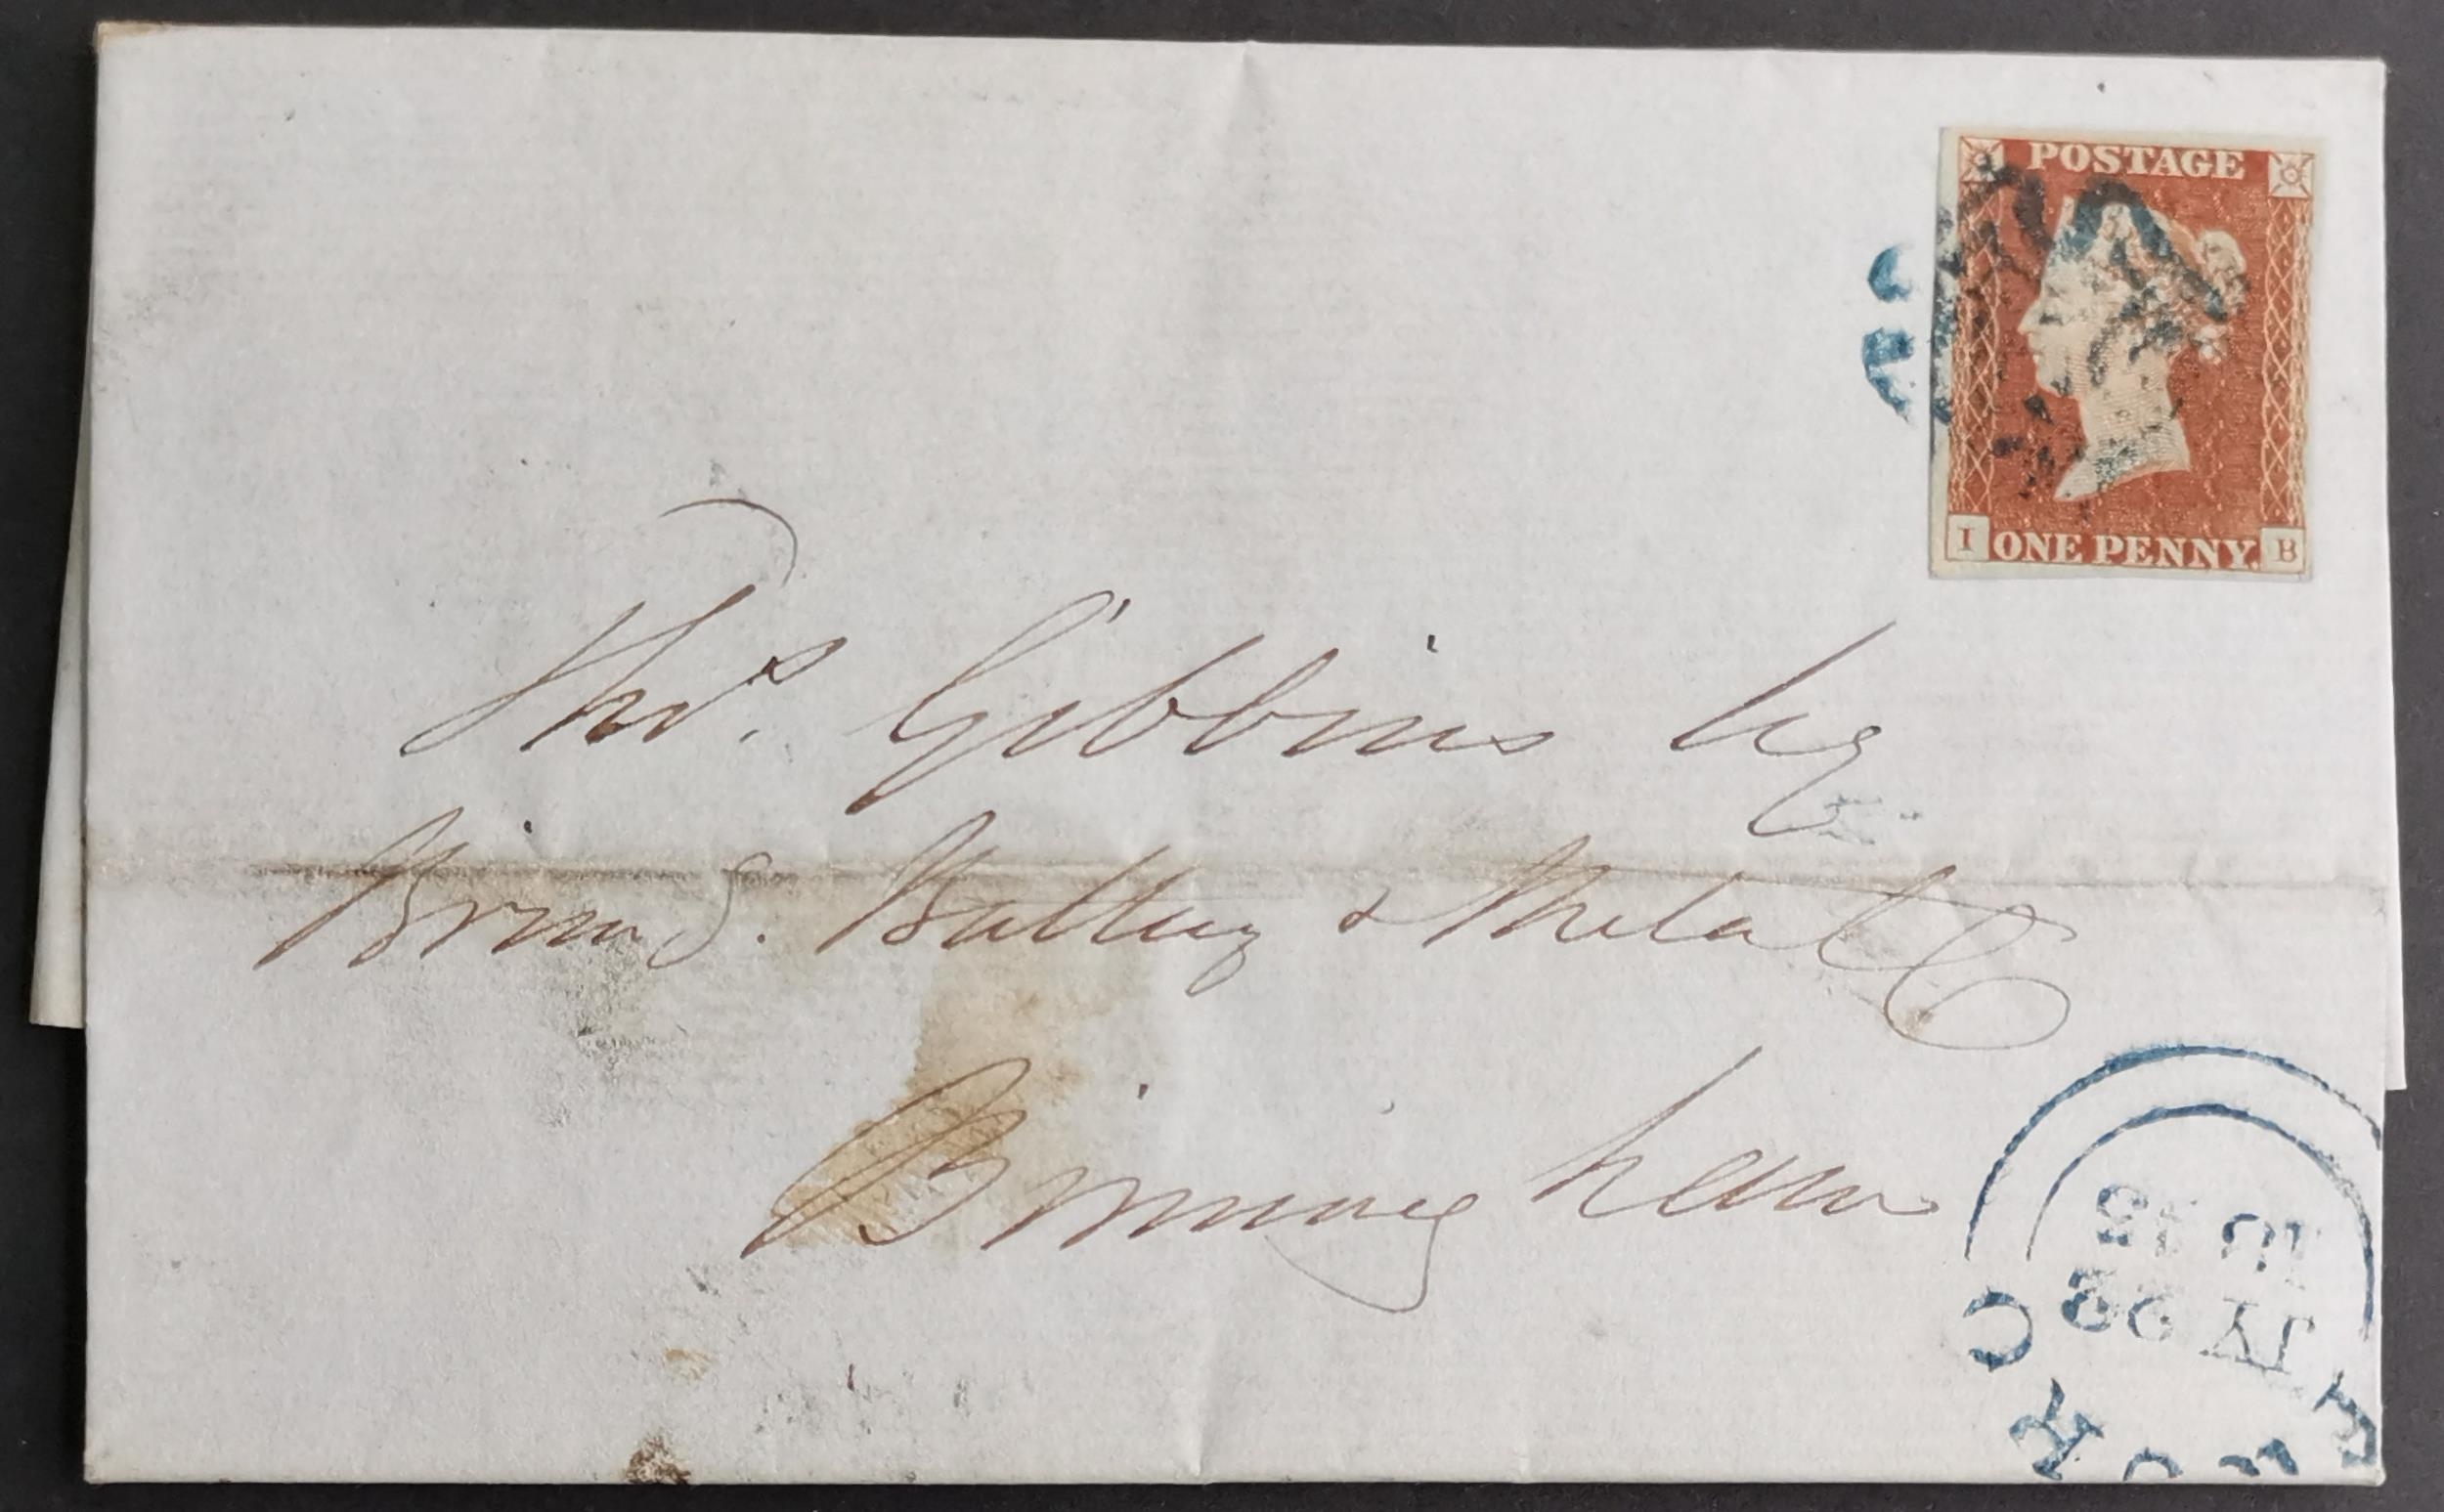 POSTAGE
I ONE PENNY. B
Thos. Gibbins Esq
Birm. Battery & Metal Co
Birmingham
JY 22